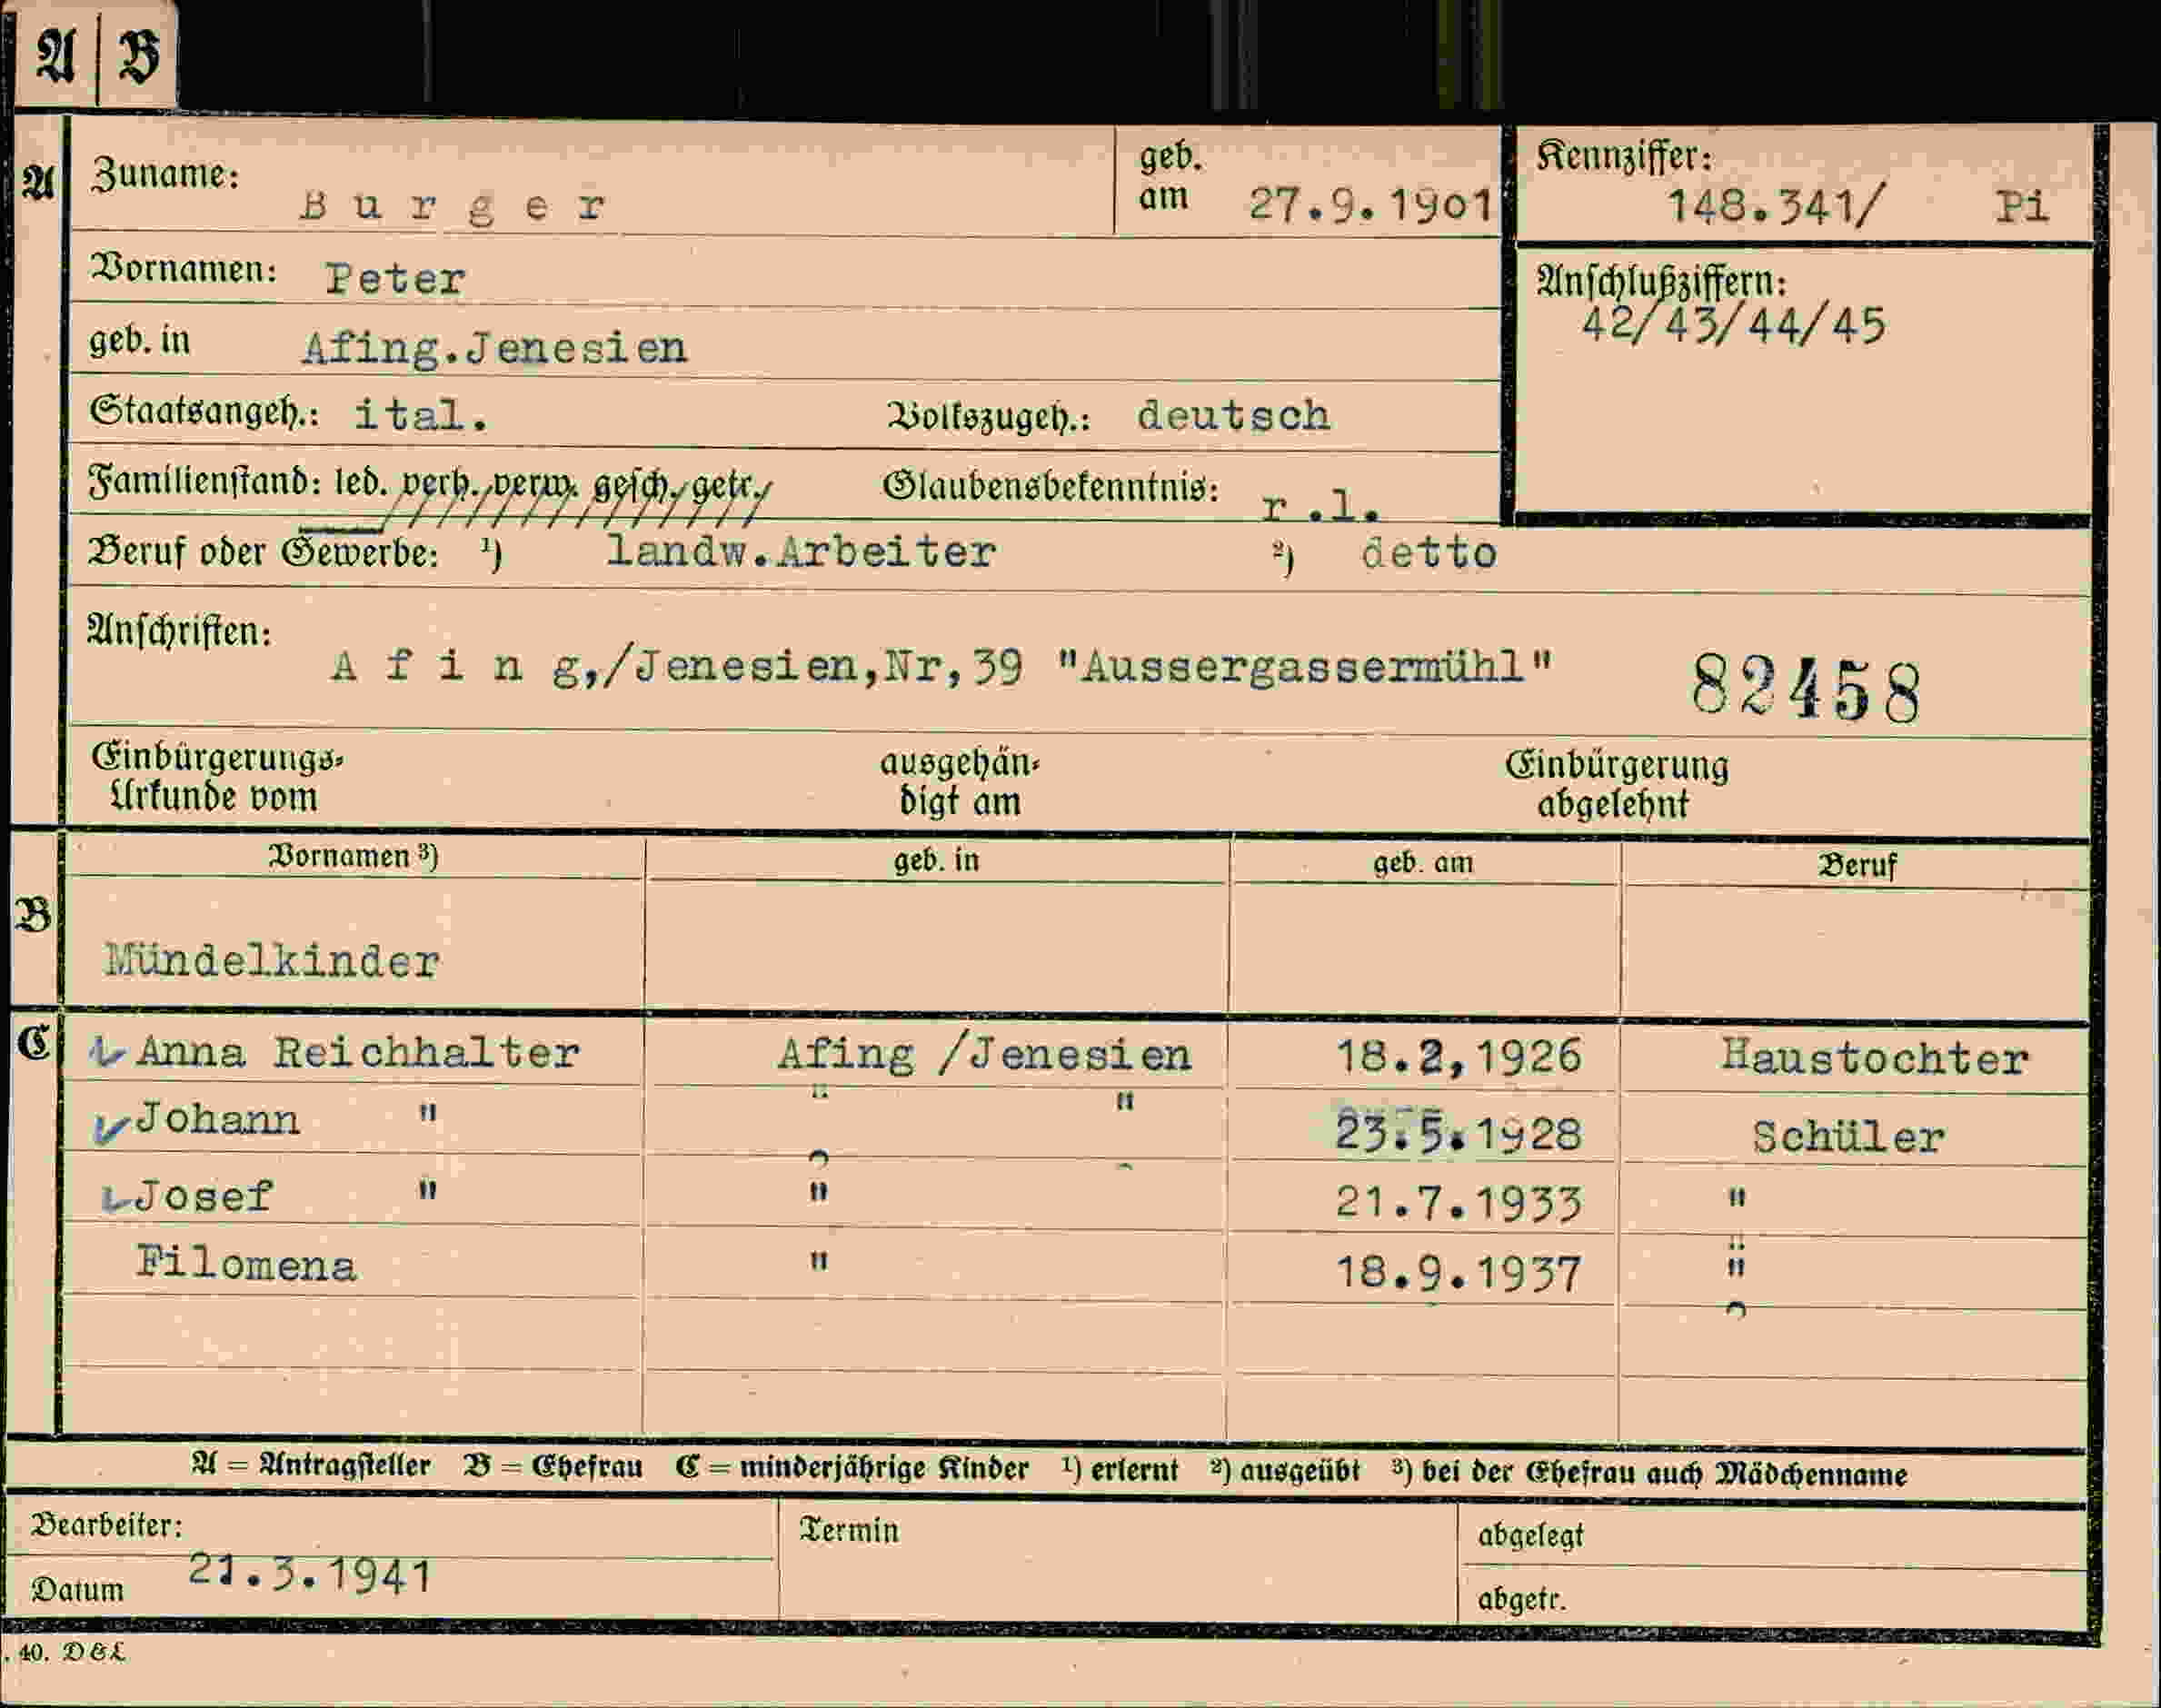 A B
A Zuname: Burger geb. am 27.9.1901 Kennziffer: 148.341/ Pi
Vornamen: Peter
Anschlußziffern: 42/43/44/45
geb. in Afing.Jenesien
Staatsangeh.: ital. Volkszugeh.: deutsch
Familienstand: led. verh., verw. gesch., getr., Glaubensbekenntnis: r.l.
Beruf oder Gewerbe: ¹) landw.Arbeiter ²) detto
Anschriften: Afing,/Jenesien,Nr,39 "Aussergassermühl" 82458
Einbürgerungs-Urkunde vom ausgehän-digt am Einbürgerung abgelehnt
Vornamen ³) geb. in geb. am Beruf
B Mündelkinder
C Anna Reichhalter Afing /Jenesien 18.2,1926 Haustochter
Johann " " " 23.5.1928 Schüler
Josef " " 21.7.1933 "
Filomena " 18.9.1937 "
A = Antragsteller B = Ehefrau C = minderjährige Kinder ¹) erlernt ²) ausgeübt ³) bei der Ehefrau auch Mädchenname
Bearbeiter: Termin abgelegt
Datum 21.3.1941 abgetr.
. 40. D&L